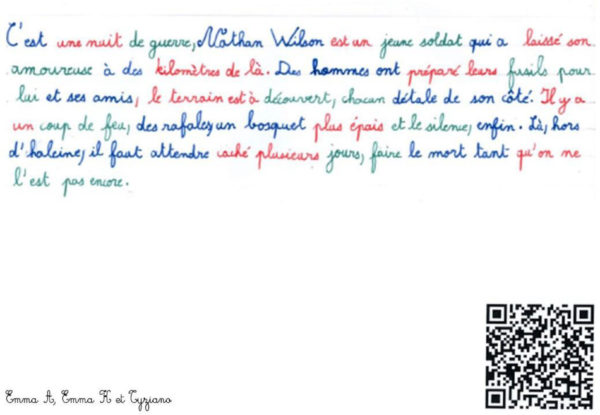 C'est une nuit de guerre, Nathan Wilson est un jeune soldat qui a laissé son
amoureuse à des kilomètres de là. Des hommes ont préparé leurs fusils pour
lui et ses amis, le terrain est à découvert, chacun détale de son côté. Il y a
un coup de feu, des rafales, un bosquet plus épais et le silence, enfin. Là, hors
d'haleine, il faut attendre caché plusieurs jours, faire le mort tant qu'on ne
l'est pas encore.
Emma A, Emma H et Tyziano